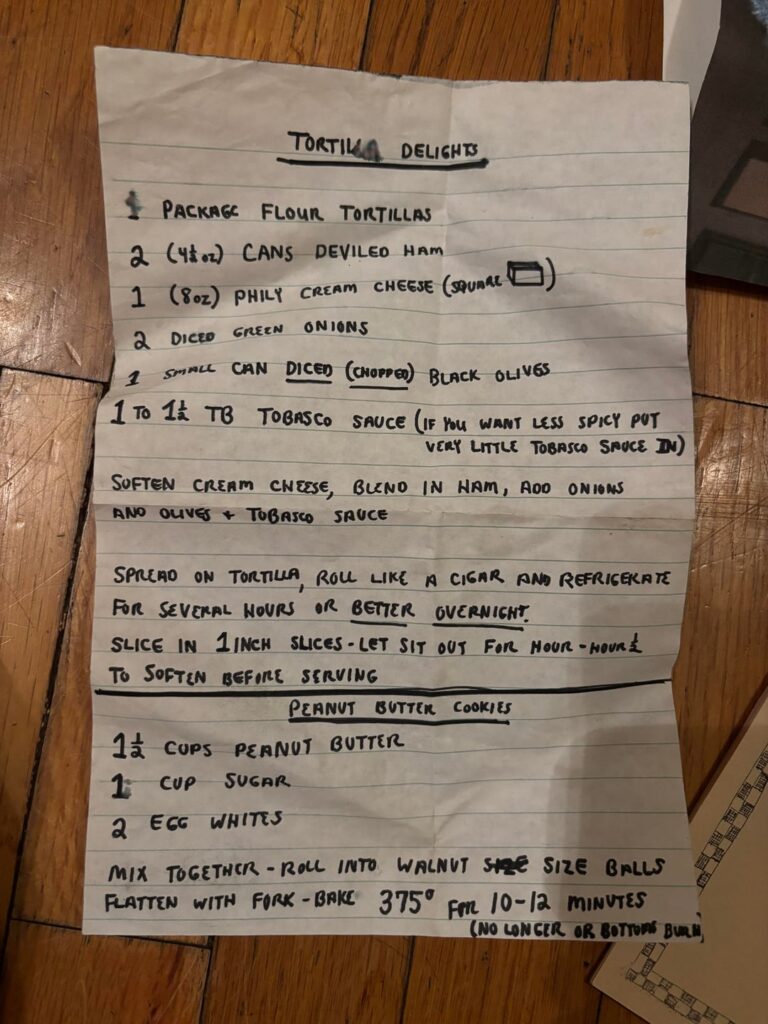 TORTILLA DELIGHTS
1 PACKAGE FLOUR TORTILLAS
2 (4½oz) CANS DEVILED HAM
1 (8oz) PHILY CREAM CHEESE (SQUARE )
2 DICED GREEN ONIONS
1 SMALL CAN DICED (CHOPPED) BLACK OLIVES
1 TO 1½ TB TOBASCO SAUCE (IF YOU WANT LESS SPICY PUT
VERY LITTLE TOBASCO SAUCE IN)
SOFTEN CREAM CHEESE, BLEND IN HAM, ADD ONIONS
AND OLIVES + TOBASCO SAUCE
SPREAD ON TORTILLA, ROLL LIKE A CIGAR AND REFRIGERATE
FOR SEVERAL HOURS OR BETTER OVERNIGHT.
SLICE IN 1 INCH SLICES - LET SIT OUT FOR HOUR - HOUR ½
TO SOFTEN BEFORE SERVING
PEANUT BUTTER COOKIES
1½ CUPS PEANUT BUTTER
1 CUP SUGAR
2 EGG WHITES
MIX TOGETHER - ROLL INTO WALNUT SIZE BALLS
FLATTEN WITH FORK - BAKE 375° FOR 10-12 MINUTES
(NO LONGER OR BOTTOMS BURN)